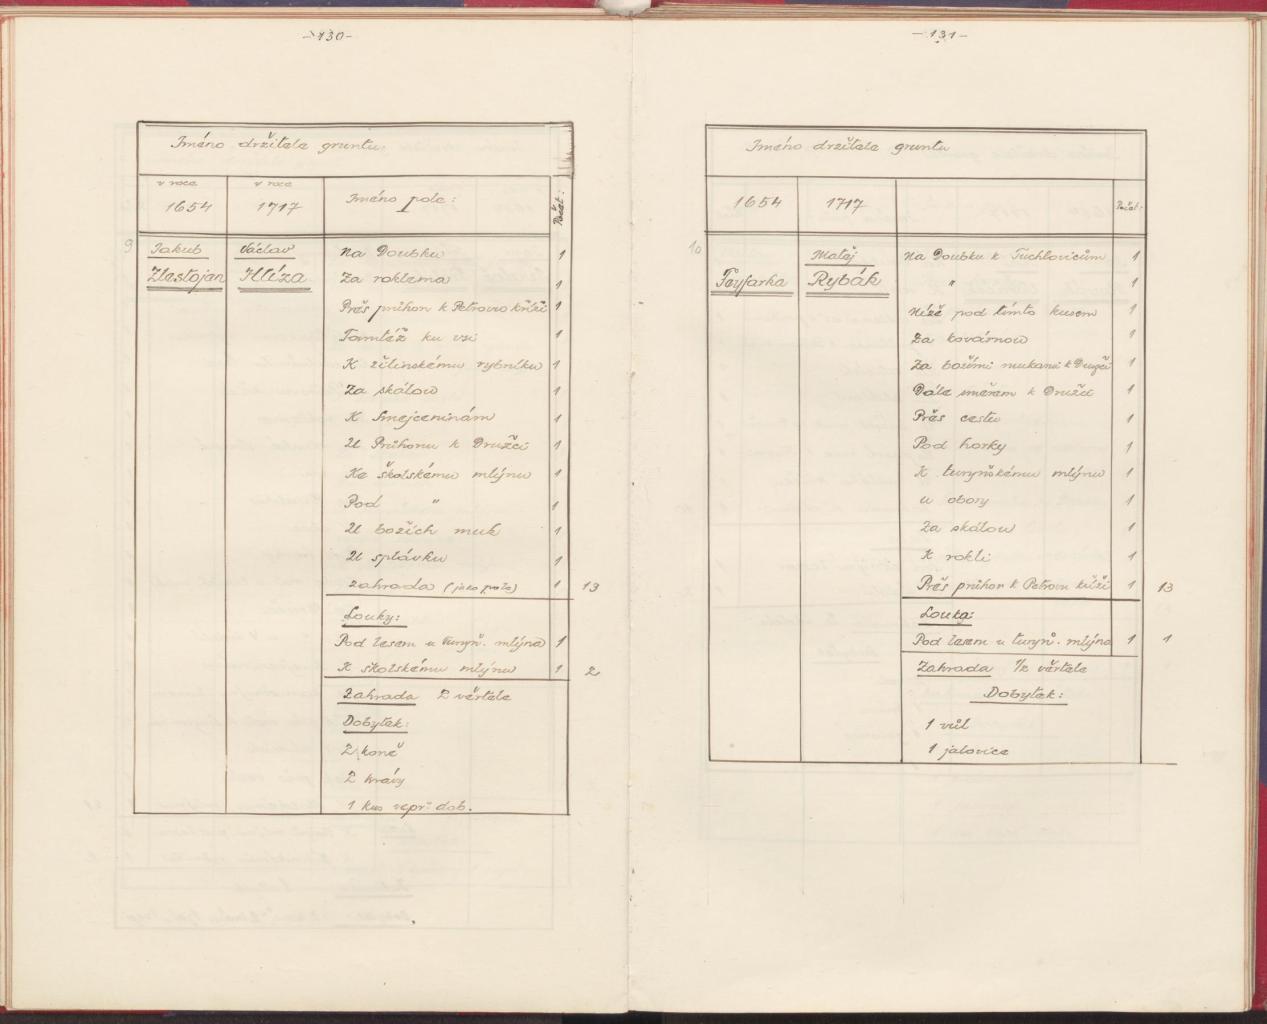 -130-
Jméno držitele gruntu:
v roce
1654
v roce
1717
Jméno pole:
Počet:
9
Jakub
Zlestojan
Václav
Hlíza
Na Doubku 1
Za roklema 1
Přes průhon k Petrovu kříži 1
Tamtéž ku vsi 1
K žilinskému rybníku 1
Za skálou 1
K Smejceninám 1
U Průhonu k Družci 1
Ke školskému mlýnu 1
Pod " 1
U božích muk 1
U splávku 1
Zahrada (jako pole) 1 13
Louky:
Pod lesem u turyň. mlýna 1
K školskému mlýnu 1 2
Zahrada 2 věrtele
Dobytek:
2 koně
2 krávy
1 kus vepř. dob.
-131-
Jméno držitele gruntu
1654
1717
Počet:
10
Fayfarka
Matěj
Rybák
Na Doubku k Tuchlovicům 1
" 1
Níže pod tímto kusem 1
Za kovárnou 1
Za božími mukami k Družci 1
Dále směrem k Družci 1
Přes cestu 1
Pod horky 1
K turyňskému mlýnu 1
u obory 1
Za skálou 1
K rokli 1
Přes průhon k Petrovu kříži 1 13
Louka:
Pod lesem u turyň. mlýna 1 1
Zahrada 1/2 věrtele
Dobytek:
1 vůl
1 jalovice